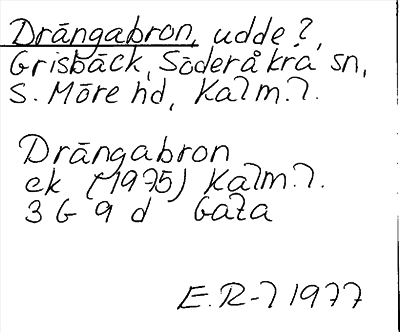 Drängabron, udde?,
Grisbäck, Söderåkra sn,
S. Möre hd, Kalm. l.
Drängabron
ek (1975) Kalm. l.
3 G 9 d Gata
E.R-l 1977